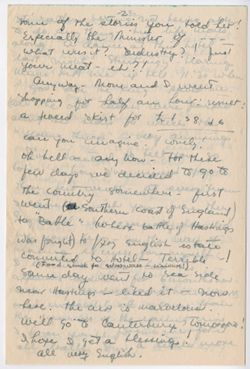 2
some of the stories you told her!
Especially the Minister of
what was it? Industry? I just
your meat - eh?!
Anyway - Mom and I went
shopping for half any hour:
a pleated skirt for
can you imagine. lovely.
oh hell - any how - for these
few days we decided to go to
the country somewhere - first
went (Southern coast of England)
to "Battle" where battle of Hastings
was fought) to English estate!
converted to hotel. Terrible!
Same day went to sea side
near Hastings - liked it - now
here. the air is marvelous.
We'll go to Canterbury tomorrow!
I hope I get a blessing!
all very English.